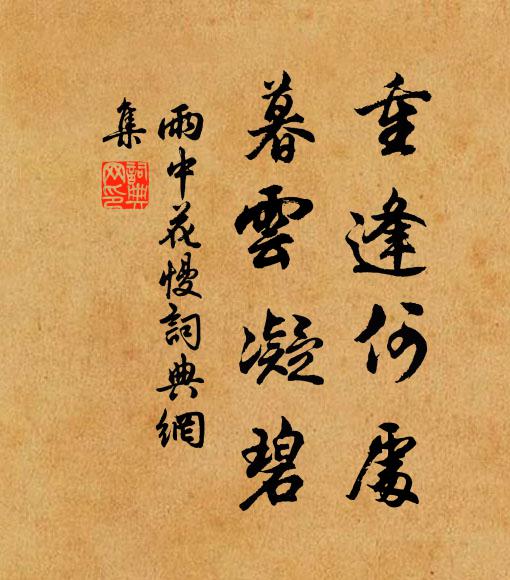 重逢何處
暮雲凝碧
雨中花慢詞典網
集
詞典
网印